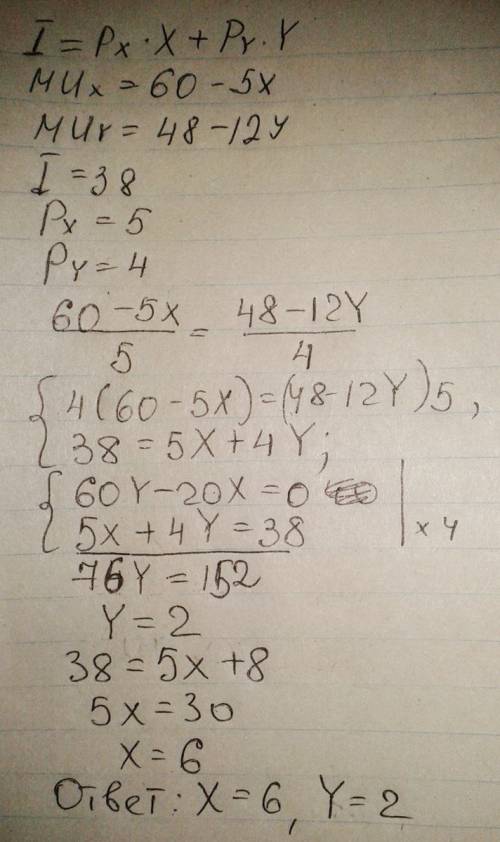 I = Px · X + Py · Y
MUx = 60 - 5x
MUy = 48 - 12y
I = 38
Px = 5
Py = 4
60 - 5x / 5 = 48 - 12Y / 4
{ 4(60 - 5x) = (48 - 12Y)5,
38 = 5X + 4Y;
{ 60Y - 20X = 0
5x + 4Y = 38 | x 4
76Y = 152
Y = 2
38 = 5x + 8
5x = 30
x = 6
Ответ: X = 6, Y = 2